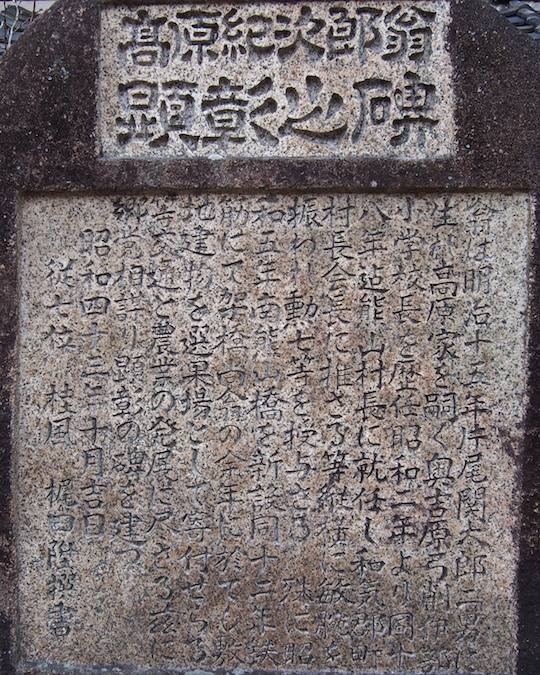 髙原紀次郎翁
顕彰之碑
翁は明治十五年片尾関太郎二男に
生れ髙原家を嗣ぐ奥吉原弓削伊部
小学校長を歴任昭和二年より同十
八年迄熊山村長に就任し和気郡町
村長会長に推さる等縦横に敏腕を
振われ勲七等を授与さる 殊に昭
和五年南熊山橋を新設同十二年
筋にて架橋同翁の 年に於ても敷
地建物を選果場として寄付せらる
等交通と農業の発展に尽さる茲に
郷党相謀り顕彰の碑を建つ
昭和四十三年十月吉日
従七位 桂風 梶田陞撰書